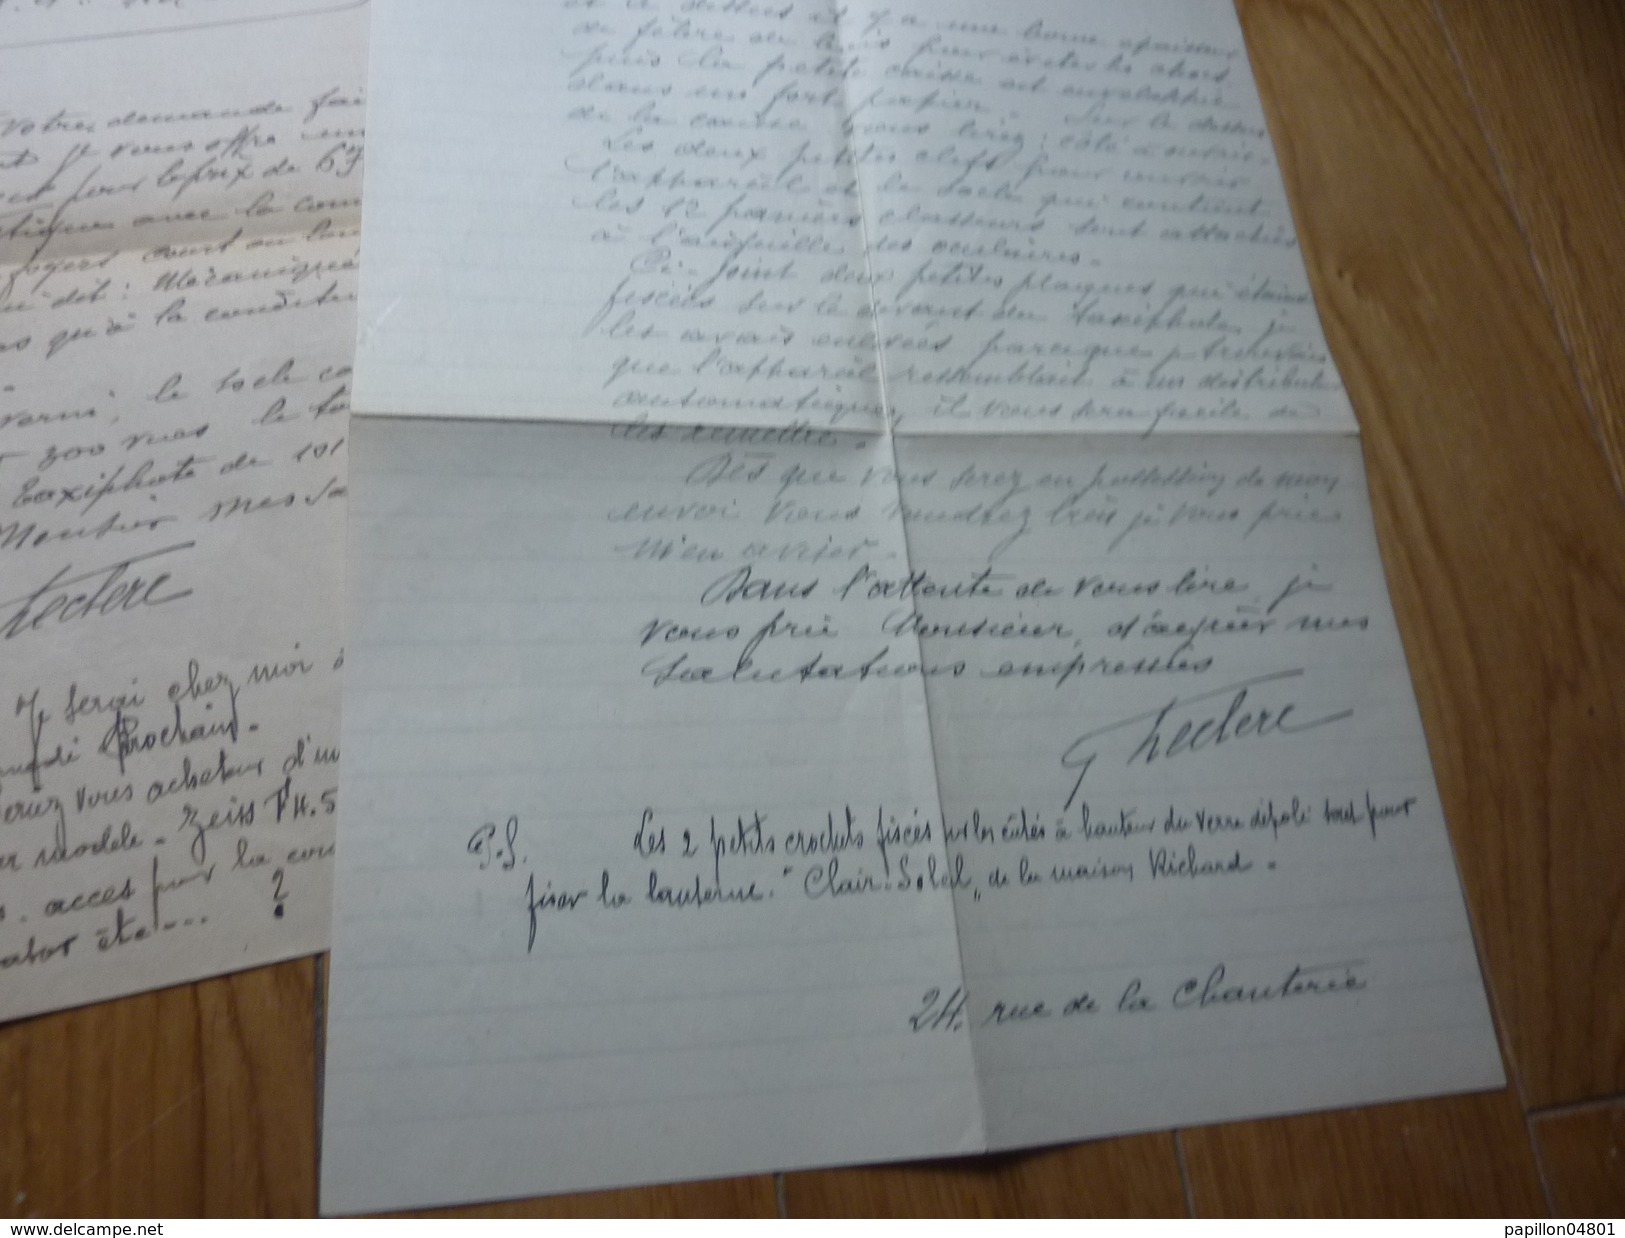 votre demande fai
je vous offre un
pour le prix de 65
avec la com
foyers court ou lon
dit : Mécanique
qu'à la condition
verni, le socle co
300 vues le ta
Taxiphote de 191
Monsieur mes sa
Leclerc
Je serai chez moi à
prochain.
vous acheteur d'un
modèle. Zeiss F4.5
acces pour la cou
été --- ?
et le dessus il y a une bonne épaisseur
de fibres de bois pour éviter les chocs
puis la petite caisse est enveloppée
dans un fort papier. Sur le dessus
de la caisse vous lirez : côté à ouvrir.
Les deux petites clefs pour ouvrir
l'appareil et le socle qui contient
les 12 paniers classeurs sont attachés
à l'aiguille des oculaires.
Ci-joint deux petites plaques qui étaient
fixées sur le devant du taxiphote, je
les avais enlevées parce que je trouvais
que l'appareil ressemblait à un distributeur
automatique, il vous sera facile de
les remettre.
Dès que vous serez en possession de mon
envoi vous voudrez bien je vous prie
m'en aviser.
Dans l'attente de vous lire, je
vous prie Monsieur, d'agréer mes
salutations empressées
G Leclerc
P.S. Les 2 petits crochets fixés sur les côtés à hauteur du verre dépoli sont pour
fixer la lanterne. "Clair-Soleil" de la maison Richard.
24, rue de la Chanterie
www.delcampe.net
papillon04801